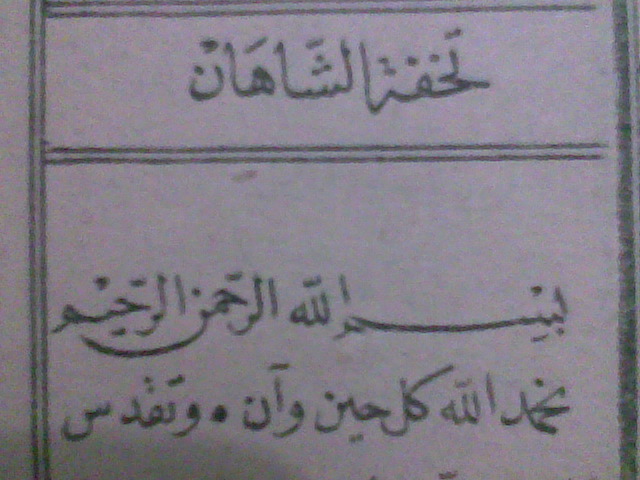 تحفة الشَّاهَانْ
بِسْـــمِ اللّٰه الرَّحمن الرَّحِيْم
نحمد اللّٰه كل حين وآن • وتقدس